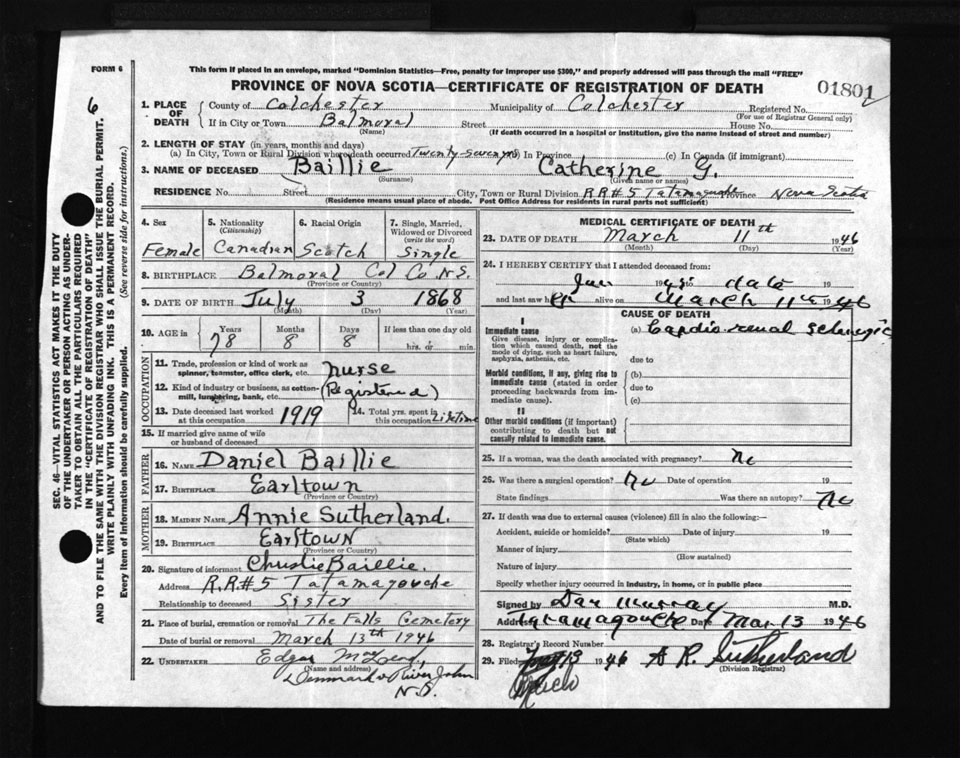 FORM 6
This form if placed in an envelope, marked "Dominion Statistics—Free, penalty for improper use $300," and properly addressed will pass through the mail "FREE"
PROVINCE OF NOVA SCOTIA—CERTIFICATE OF REGISTRATION OF DEATH
01801
6
SEC. 46—VITAL STATISTICS ACT MAKES IT THE DUTY
OF THE UNDERTAKER OR PERSON ACTING AS UNDER-
TAKER TO OBTAIN ALL THE PARTICULARS REQUIRED
IN THE "CERTIFICATE OF REGISTRATION OF DEATH"
AND TO FILE THE SAME WITH THE DIVISION REGISTRAR WHO SHALL ISSUE THE BURIAL PERMIT.
WRITE PLAINLY WITH UNFADING INK. THIS IS A PERMANENT RECORD.
Every item of information should be carefully supplied. (See reverse side for instructions.)
1. PLACE OF DEATH County of Colchester Municipality of Colchester Registered No.
(For use of Registrar General only)
If in City or Town Balmoral Street House No.
(Name) (If death occurred in a hospital or institution, give the name instead of street and number)
2. LENGTH OF STAY (in years, months and days)
(a) In City, Town or Rural Division where death occurred Twenty-seven yrs In Province (c) In Canada (if immigrant)
3. NAME OF DECEASED Baillie Catherine G.
(Surname) (Given name or names)
RESIDENCE No. Street City, Town or Rural Division R.R#5 Tatamagouche Province Nova Scotia
(Residence means usual place of abode. Post Office Address for residents in rural parts not sufficient)
4. Sex 5. Nationality (Citizenship) 6. Racial Origin 7. Single, Married, Widowed or Divorced (write the word)
Female Canadian Scotch Single
8. BIRTHPLACE Balmoral Col Co N.S.
(Province or Country)
9. DATE OF BIRTH July 3 1868
(Month) (Day)
10. AGE in Years Months Days If less than one day old
78 8 8 hrs. or min.
OCCUPATION
11. Trade, profession or kind of work as spinner, teamster, office clerk, etc. Nurse
12. Kind of industry or business, as cotton-mill, lumbering, bank, etc. (Registered)
13. Date deceased last worked at this occupation 1919 14. Total yrs. spent in this occupation Lifetime
15. If married give name of wife or husband of deceased
FATHER
16. NAME Daniel Baillie
17. BIRTHPLACE Earltown
(Province or Country)
MOTHER
18. MAIDEN NAME Annie Sutherland.
19. BIRTHPLACE Earltown
(Province or Country)
20. Signature of informant Christie Baillie.
Address R.R#5 Tatamagouche
Relationship to deceased Sister
21. Place of burial, cremation or removal The Falls Cemetery
Date of burial or removal March 13th 1946
22. UNDERTAKER Edgar
(Name and address)
Denmark River John
N.S.
MEDICAL CERTIFICATE OF DEATH
23. DATE OF DEATH March 11th 1946
(Month) (Day) (Year)
24. I HEREBY CERTIFY that I attended deceased from:
Jan 1945 to date 19
and last saw her alive on March 11th 1946
CAUSE OF DEATH
I
Immediate cause (a) Cardio-renal
Give disease, injury or complication which caused death, not the mode of dying, such as heart failure, asphyxia, asthenia, etc. due to
Morbid conditions, if any, giving rise to immediate cause (stated in order proceeding backwards from immediate cause). (b)
due to
(c)
II
Other morbid conditions (if important) contributing to death but not causally related to immediate cause.
25. If a woman, was the death associated with pregnancy? No
26. Was there a surgical operation? No Date of operation 19
State findings Was there an autopsy? No
27. If death was due to external causes (violence) fill in also the following:—
Accident, suicide or homicide? Date of injury 19
(State which)
Manner of injury
(How sustained)
Nature of injury
Specify whether injury occurred in industry, in home, or in public place
Signed by Dan Murray M.D.
Address Tatamagouche Date Mar 13 1946
28. Registrar's Record Number
29. Filed 13 1946 A R. Sutherland
March (Division Registrar)